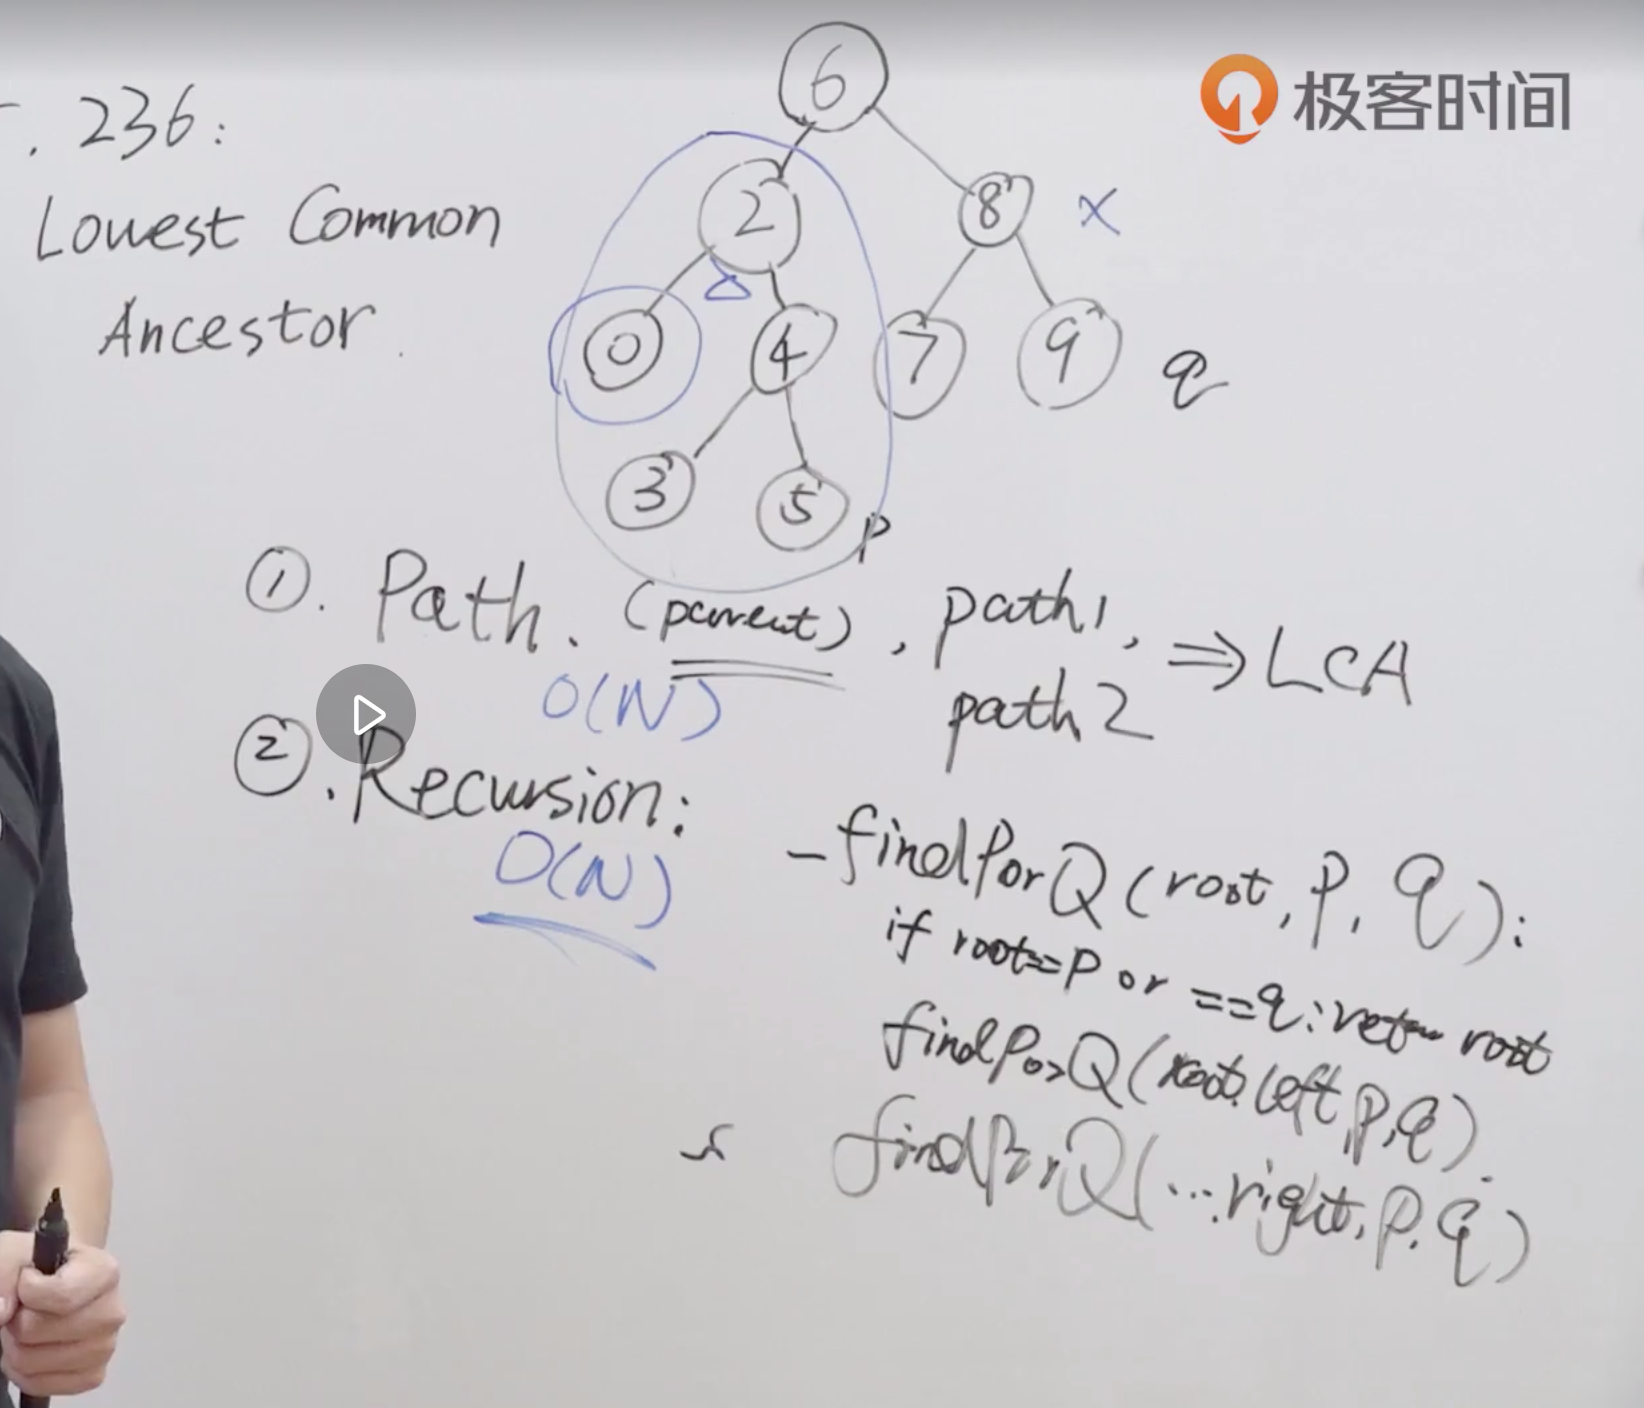 极客时间
. 236:
Lowest Common
Ancestor.
6
2
8
x
0
4
7
9
q
3
5
p
①. Path. (parent), path1,
path2
⇒ LCA
O(N)
②. Recursion:
O(N)
- findPorQ(root, P, q):
if root==P or ==q: return root
findPorQ(root.left, P, q)
findPorQ(...right, P, q)